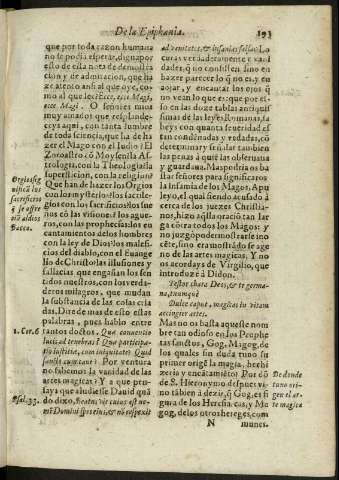 De la Epiphania. 193
que por toda razon humana
no se podia esperar, digna por
esto desta nota de demostra
cion y de admiracion, que ha
ze atento assi al que oye, co-
mo al que lee: Ecce, ecce Magi,
ecce Magi. O señores mios
muy amados que resplande-
ceys aqui, con tanta lumbre
de toda sciencia, que ha de ha
zer el Mago con el Iudio? El
Zoroastro cõ Moysen? la As-
trologia, con la Theologia? la
supersticion, con la religion?
Que han de hazer los Orgios
con los mysterios? los sacrile-
gios con los sacrificios? los sue
nos cõ las visiones? los ague-
ros, con las prophecias? los en
cantamientos de los hombres
con la ley de Dios? los malefi-
cios del diablo, con el Euange
lio de Christo? las illusiones y
fallacias que engañan los sen
tidos nuestros, con los verda-
deros milagros, que mudan
la substancia de las cosas cria
das. Dire de mas de esto estas
palabras, pues hablo entre
tantos doctos. Quæ conuentio
luci, ad tenebras? Quæ participa-
tio iustitiæ, cum iniquitate? Quid
Por ventura
no sabemos la vanidad de las
artes magicas? Y a que pen-
saya que aludiesse Dauid quã
do dixo, Beatus vir cuius est no-
mẽ Domini spes eius, & nõ respexit
Orgios sig
nificã los
sacrificios
q̃ se offre
nã al dios
Bacco.
1. Cor. 6
Psal. 33.
ad vanitates, & insanias falsas? Lo
curas verdaderamente y vani
dades, q̃ no consisten sino en
hazer parecer lo q̃ no es, y en
aojar, y encantar los ojos q̃
no vean lo que es: que por es-
so en las doze tablas antiquis
simas de las leyes Romanas, la
leyes con quanta seueridad es
ten condenadas y vedadas, cõ
determinar y señalar tambien
las penas à quiẽ las obseruana
y guardaua. Mas podria os ba
star señores para significaros
la infamia de los Magos, Apu
leyo, el qual siendo acusado à
cerca de los juezes Christia-
nos, hizo aq̃lla oraciõ tan lar
ga cõtra todos los Magos: y
no juzgandolo por mostrarse ino
cẽte, sino era mostrãdose age
no de las artes magicas. Y no
os acordays de Virgilio, que
introduze à Didon.
Testor chara Deos, & te germa-
na, tuumque
Dulce caput, magicas in vitam
accingier artes.
Mas no os basta aqueste nom
bre tan odioso en los Prophe
tas sanctos, Gog, Magog, de
los quales sin duda tuuo su
primer origẽ la magia, hechi
zeria y encãtamiẽto? Por dõ
de S. Hieronymo despues vi-
no tãbien a dezir, q̃ Gog, es fi
gura de los Heresiarcas, y Ma
gog, de los otros hereges, com
N munes.
De donde
tuuo ori-
gen el ar-
te magica